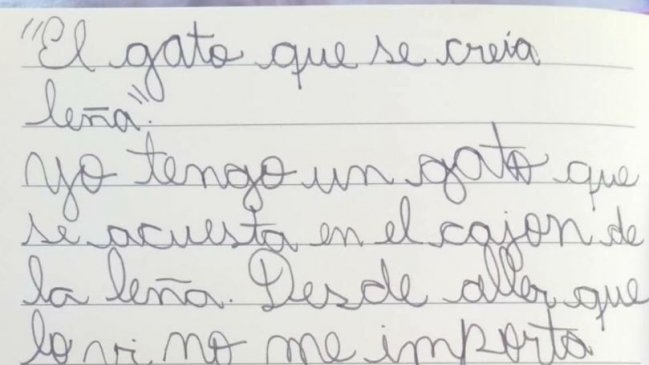 "El gato que se creia
leña".
Yo tengo un gato que
se acuesta en el cajon de
la leña. Desde aller que
lo vi no me importa